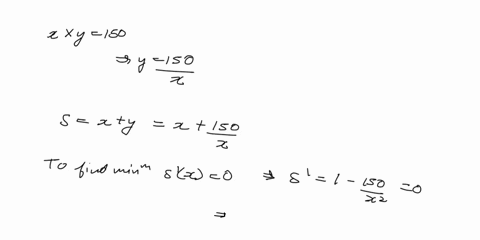 x × y = 150
⇒ y = 150/x
S = x + y = x + 150/x
To find minᵐ S'(x) = 0 ⇒ S' = 1 - 150/x² = 0
⇒